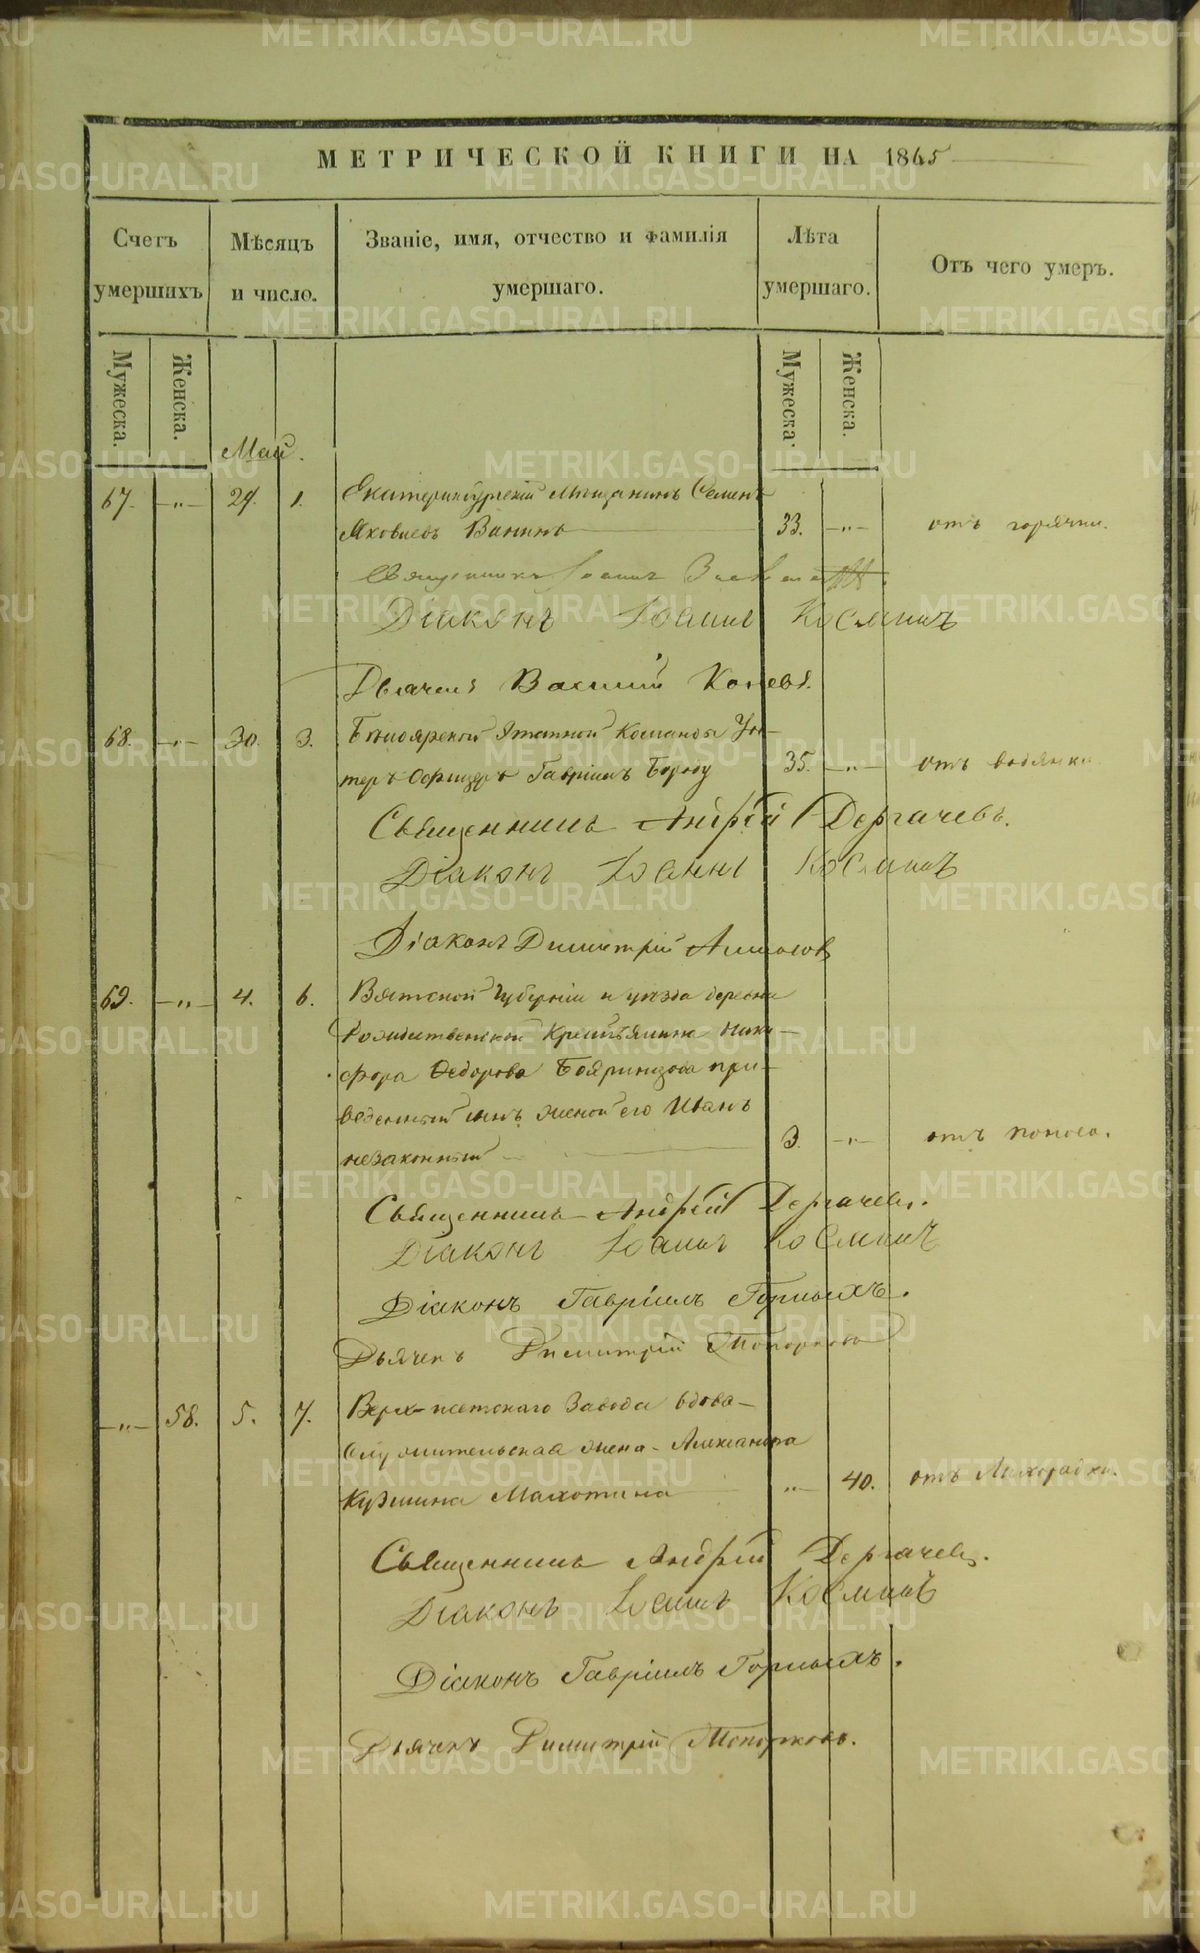 МЕТРИЧЕСКОЙ КНИГИ НА 1865
Счетъ умершихъ
Мѣсяцъ и число.
Званіе, имя, отчество и фамилія умершаго.
Лѣта умершаго.
Отъ чего умеръ.
Мужеска.
Женска.
Мужеска.
Женска.
Май.
67. -„- 29. 1. Екатеринбургскій Мѣщанинъ Семенъ
Яковлевъ Ванинъ 33. -„- отъ горячки.
Священникъ Іоаннъ
Діаконъ Іоаннъ Косминъ
Дьячекъ Василій
68. -„- 30. 3. Этапной Команды Ун-
теръ-Офицеръ Гавріилъ 35. -„- отъ водянки
Священникъ Андрей Дергачевъ.
Діаконъ Іоаннъ Косминъ
Діаконъ Димитрій
69. -„- 4. 6. Вятской Губерніи и уѣзда деревни
Рождественской Крестьянина Ники-
фора Ѳедорова Бояринцова при-
веденный сынъ женой его Иванъ
незаконный 3. -„- отъ поноса.
Священникъ Андрей Дергачевъ.
Діаконъ Іоаннъ Косминъ
Діаконъ Гавріилъ Горныхъ.
Дьячекъ Димитрій Топорковъ
-„- 58. 5. 7. Верх-исетскаго Завода вдова-
служительская жена Александра
Кузмина Махотина „- 40. отъ Лихорадки.
Священникъ Андрей Дергачевъ.
Діаконъ Іоаннъ Косминъ
Діаконъ Гавріилъ Горныхъ.
Дьячекъ Димитрій Топорковъ.
METRIKI.GASO-URAL.RU